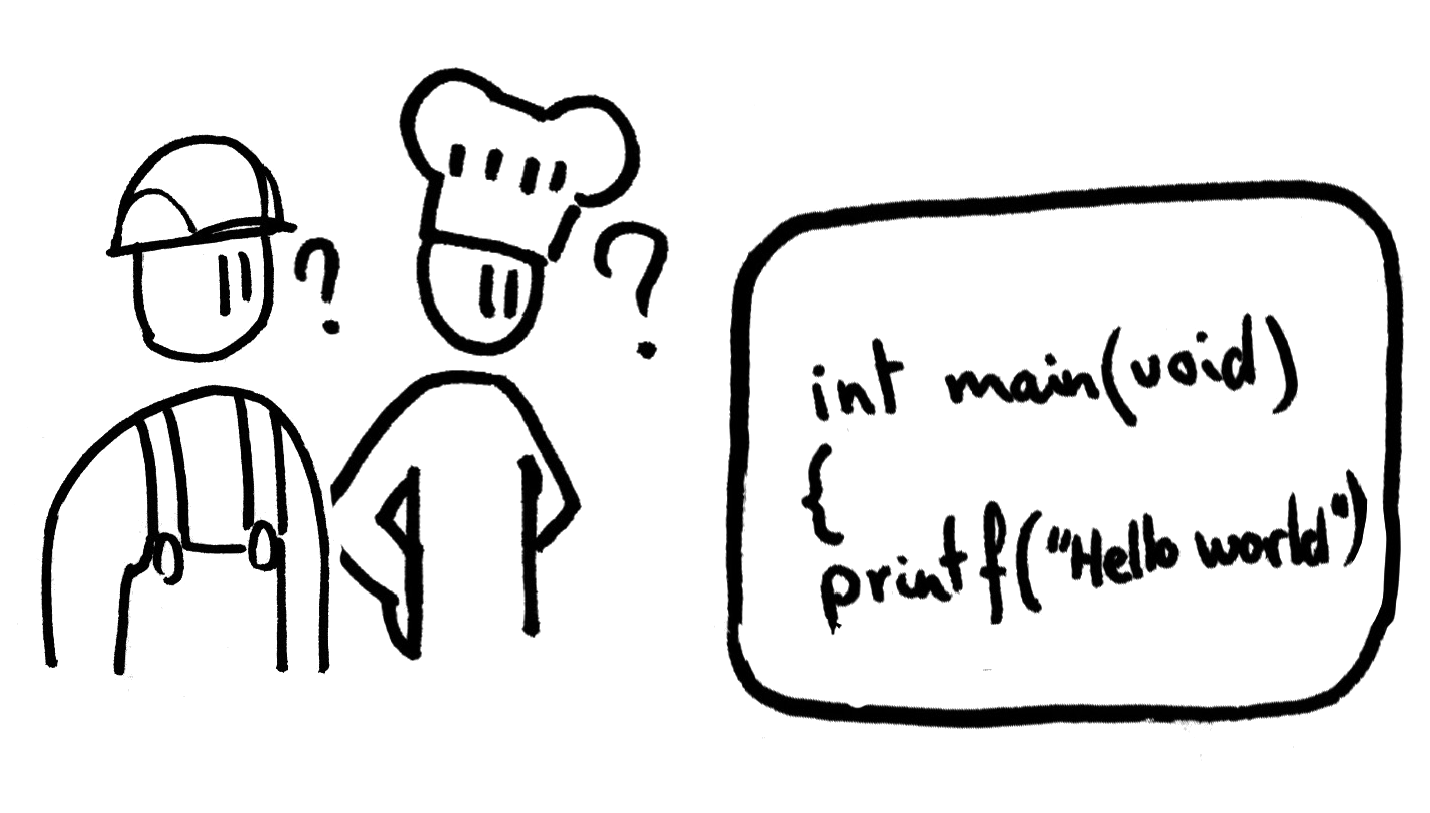 ?
?
int main(void)
{
printf("Hello world")